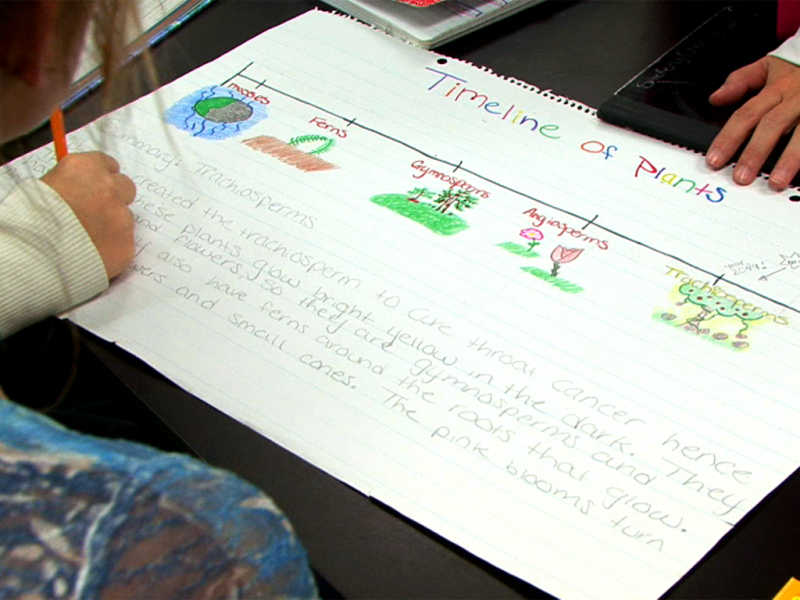 Timeline of Plants
mosses
Ferns
Gymnosperms
Angiosperms
Trachiosperms
Summary: Trachiosperms
created the trachiosperm to cure throat cancer hence
these plants glow bright yellow in the dark. They
and flowers, so they are gymnosperms and
also have ferns around the roots that glow.
and small cones. The pink blooms turn